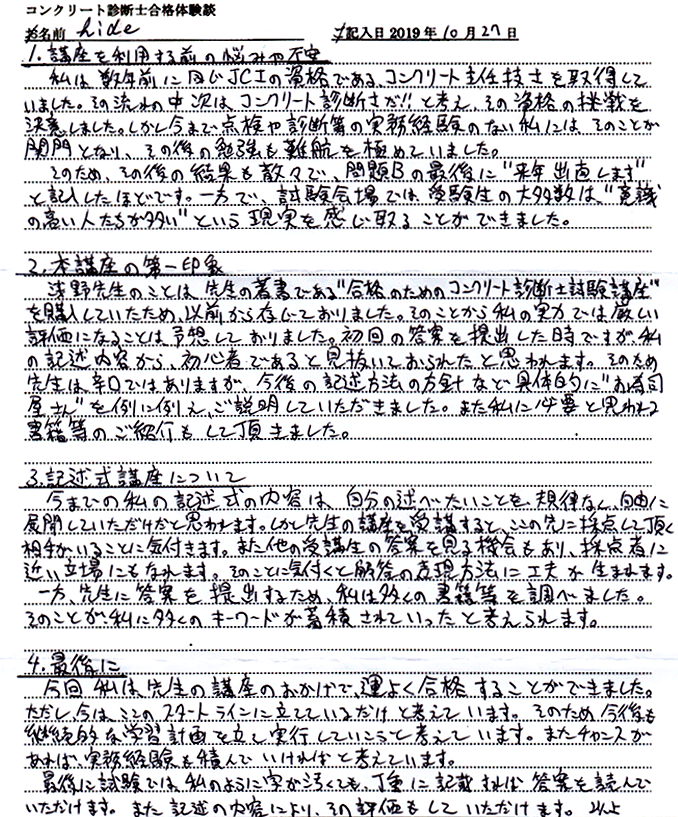 コンクリート診断士合格体験談
お名前 hide 記入日 2019 年 10 月 27 日
1.講座を利用する前の悩みや不安
私は数年前に同じJCIの資格である、コンクリート主任技士を取得して
いました。その流れの中次は、コンクリート診断士が!!と考え、その資格の挑戦を
決意しました。しかし今まで点検や診断等の実務経験のない私には、そのことが
関門となり、その後の勉強も難航を極めていました。
そのため、その後の結果も散々で、問題Bの最後に"来年出直します"
と記入したほどです。一方で、試験会場では、受験生の大多数は、"意識
の高い人たちが多い"という現実を感じ取ることができました。
2.本講座の第一印象
浅野先生のことは、先生の著書である"合格のためのコンクリート診断士試験講座"
を購入していたため、以前から存じておりました。そのことから私の実力では厳しい
評価になることは予想しておりました。初回の答案を提出した時ですが、私
の記述内容から、初心者であると見抜いておられたと思われます。そのため
先生は、辛口ではありますが、今後の記述方法の方針など具体的に"お寿司
屋さん"を例に例え、ご説明していただきました。また私に必要と思われる
書籍等のご紹介もして頂きました。
3.記述式講座について
今までの私の記述式の内容は、自分の述べたいことを、規律なく、自由に
展開していただけかと思われます。しかし先生の講座を受講すると、ここの先に採点して頂く
相手がいることに気付きます。また他の受講生の答案を見る機会もあり、採点者に
近い立場にもなれます。そのことに気付くと解答の表現方法に工夫が生まれます。
一方、先生に答案を提出するため、私は多くの書籍等を調べました。
そのことが、私に多くのキーワードが蓄積されていったと考えられます。
4.最後に
今回私は、先生の講座のおかげで、運よく合格することができました。
ただし、今は、ここのスタートラインに立てているだけと考えています。そのため今後も
継続的な学習計画を立て実行していこうと考えています。またチャンスが
あれば、実務経験も積んでいければと考えています。
最後に試験では、私のように字が汚くても、丁重に記載すれば答案を読んで
いただけます。また記述の内容により、その評価もしていただけます。以上